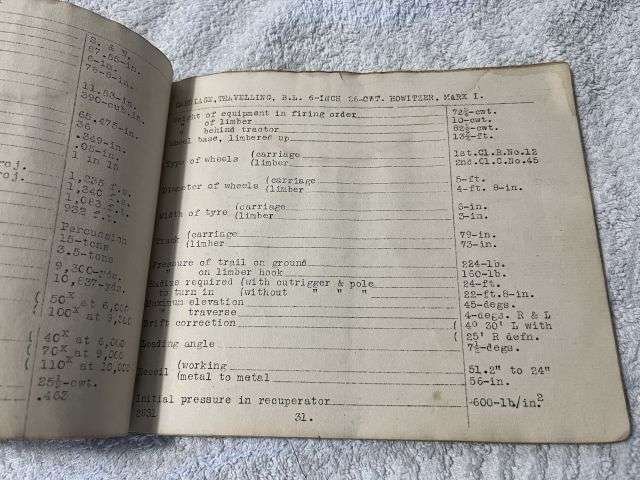 S. & V.
87.55-in.
6-in.
79-8-in.
11.53-in.
390-cub.in.
65.475-in.
36
.05-in.
1 in 15
1,235 f.s.
1,240 f.s.
1,083 f.t.
932 f.t.
Percussion
15-tons
3.5-tons
9,300-yds.
10,637-yds.
( 50x at 6,000
( 100x at 9,000
( 40x at 6,000
( 70x at 9,000
( 110x at 10,000
25½-cwt.
.462
CARRIAGE, TRAVELLING, B.L. 6-INCH 26-CWT. HOWITZER, MARK I.
Weight of equipment in firing order 72½-cwt.
" of limber 10-cwt.
" behind tractor 82½-cwt.
Wheel base, limbered up 13¾-ft.
Type of wheels (carriage 1st.Cl.B.No.12
(limber 2nd.Cl.C.No.45
Diameter of wheels (carriage 5-ft.
(limber 4-ft. 8-in.
Width of tyre (carriage 6-in.
(limber 3-in.
Track (carriage 79-in.
(limber 73-in.
Pressure of trail on ground 224-lb.
" on limber hook 150-lb.
Radius required (with outrigger & pole 24-ft.
to turn in (without " " " 22-ft.8-in.
Maximum elevation 45-degs.
" traverse 4-degs. R & L
Drift correction ( 4o 30' L with
( 25' R defn.
Loading angle 7½-degs.
Recoil (working 51.2" to 24"
(metal to metal 56-in.
Initial pressure in recuperator 600-lb/in.2
2831 31.